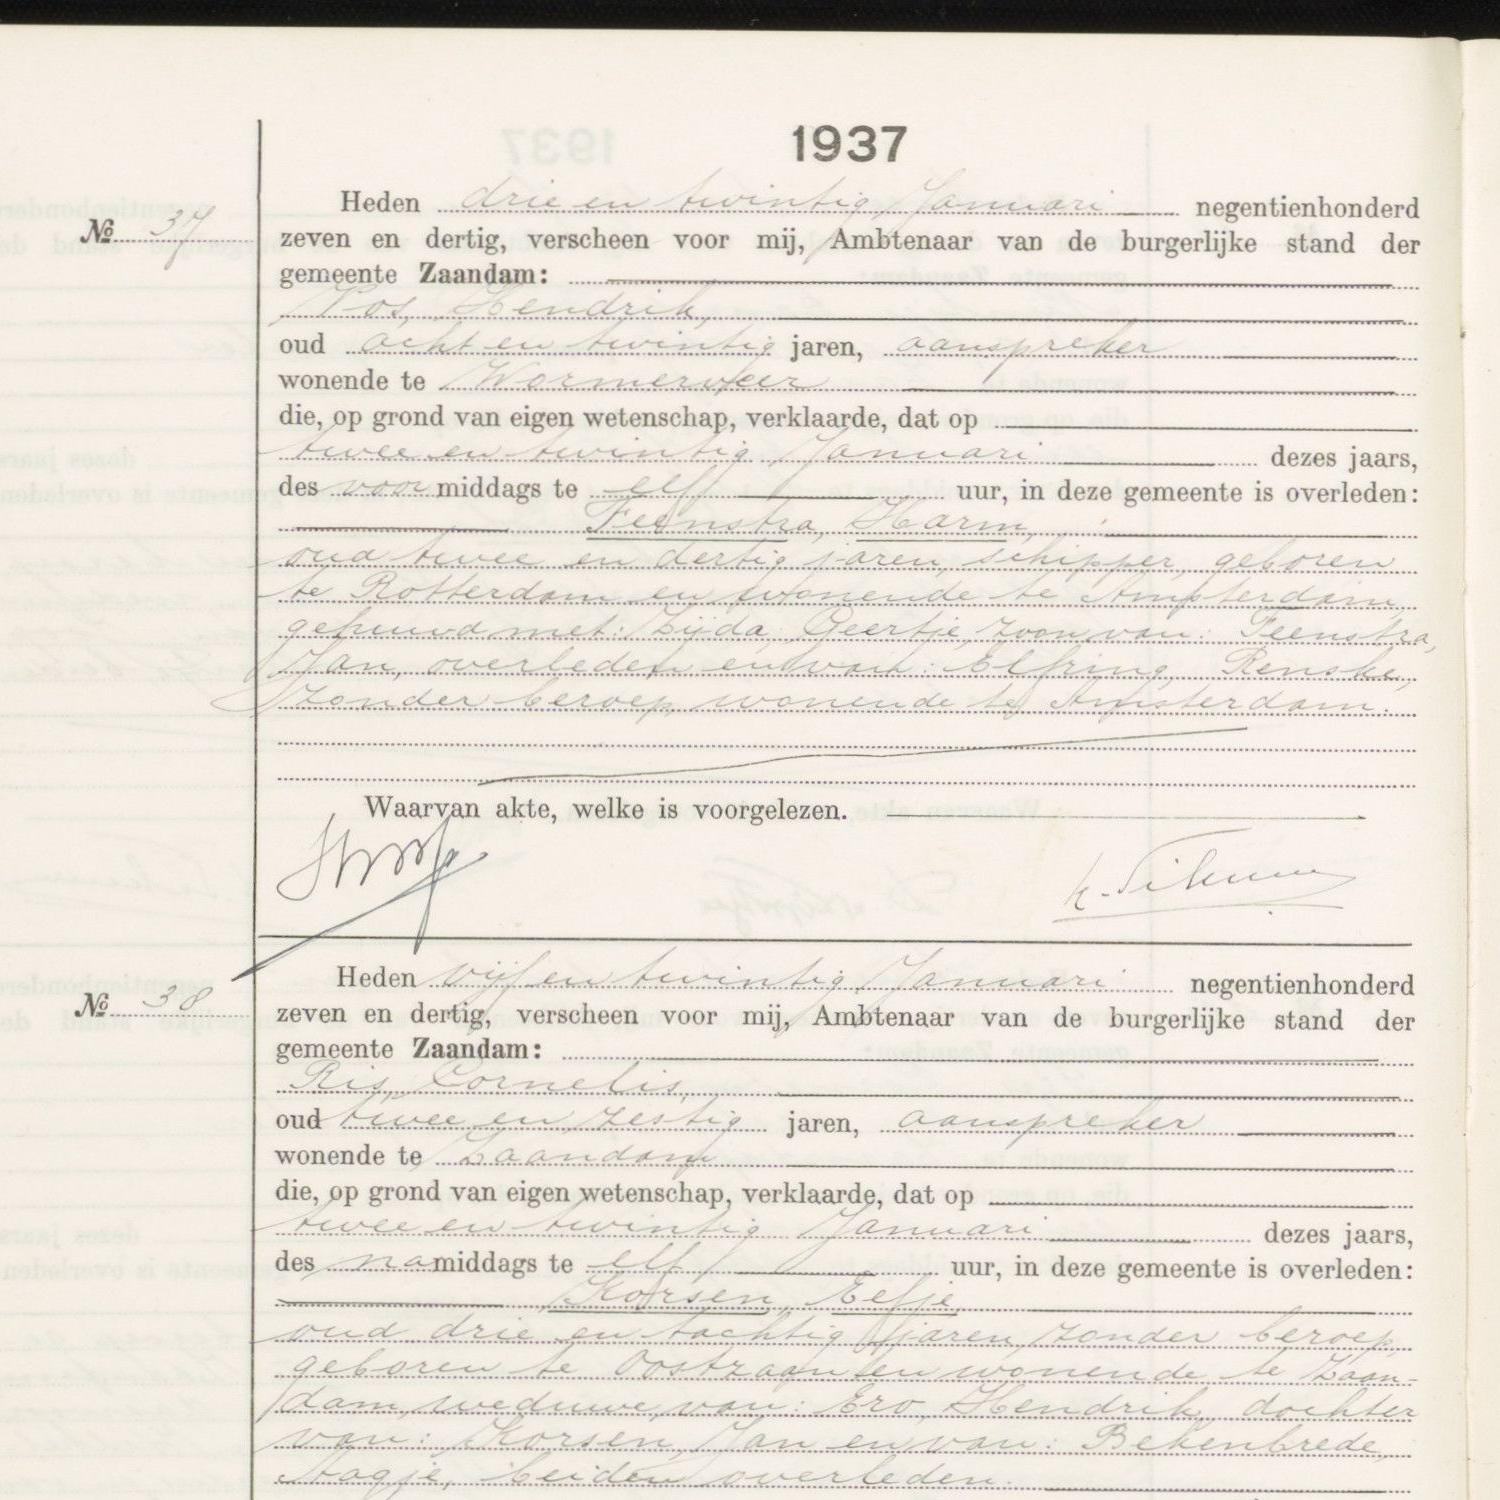 1937
Heden drie en twintig Januari negentienhonderd
№ 37
zeven en dertig, verscheen voor mij, Ambtenaar van de burgerlijke stand der
gemeente Zaandam:
Vos, Hendrik,
oud acht en twintig jaren, aanspreker
wonende te Wormerveer
die, op grond van eigen wetenschap, verklaarde, dat op
twee en twintig Januari dezes jaars,
des voormiddags te elf uur, in deze gemeente is overleden:
Feenstra, Harm,
oud twee en dertig jaren, schipper, geboren
te Rotterdam en wonende te Amsterdam,
gehuwd met: Zijda, Geertje, zoon van: Feenstra,
Jan, overleden, en van: Elfring, Renske,
zonder beroep, wonende te Amsterdam.
Waarvan akte, welke is voorgelezen.
Heden vijf en twintig Januari negentienhonderd
№ 38
zeven en dertig, verscheen voor mij, Ambtenaar van de burgerlijke stand der
gemeente Zaandam:
Ris, Cornelis,
oud twee en zestig jaren, aanspreker
wonende te Zaandam
die, op grond van eigen wetenschap, verklaarde, dat op
twee en twintig Januari dezes jaars,
des namiddags te elf uur, in deze gemeente is overleden:
Korsen, Eefje,
oud drie en tachtig jaren, zonder beroep,
geboren te Oostzaan en wonende te Zaan-
dam, weduwe van: Ero, Hendrik, dochter
van: Korsen, Jan en van: Bekenbrede,
beiden overleden.